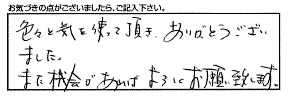 お気づきの点がございましたら、ご記入下さい。
色々と気を使って頂き、ありがとうござい
ました。
また機会があればよろしくお願い致します。